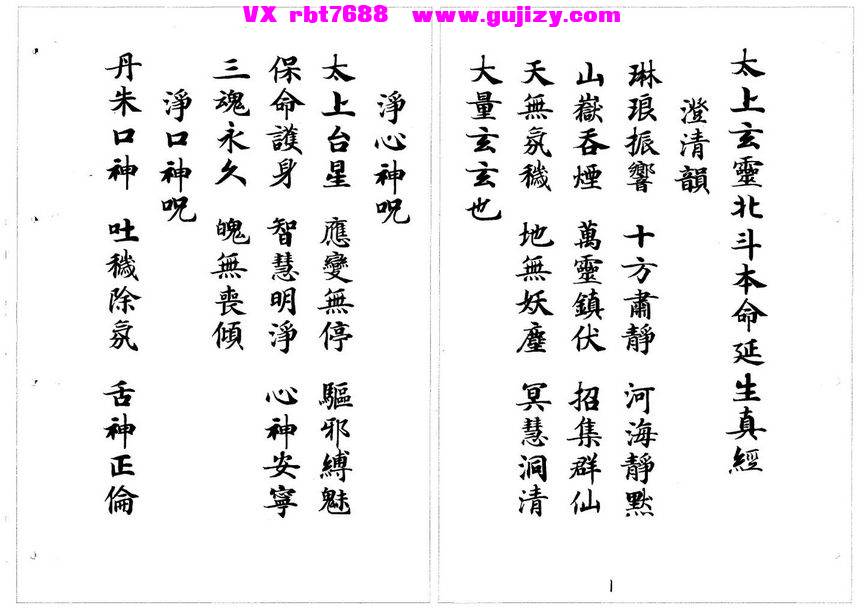 VX rbt7688 www.gujizy.com
太上玄靈北斗本命延生真經
澄清韻
琳琅振響 十方肅靜 河海靜默
山嶽吞煙 萬靈鎮伏 招集群仙
天無氛穢 地無妖塵 冥慧洞清
大量玄玄也
淨心神呪
太上台星 應變無停 驅邪縛魅
保命護身 智慧明淨 心神安寧
三魂永久 魄無喪傾
淨口神呪
丹朱口神 吐穢除氛 舌神正倫
1